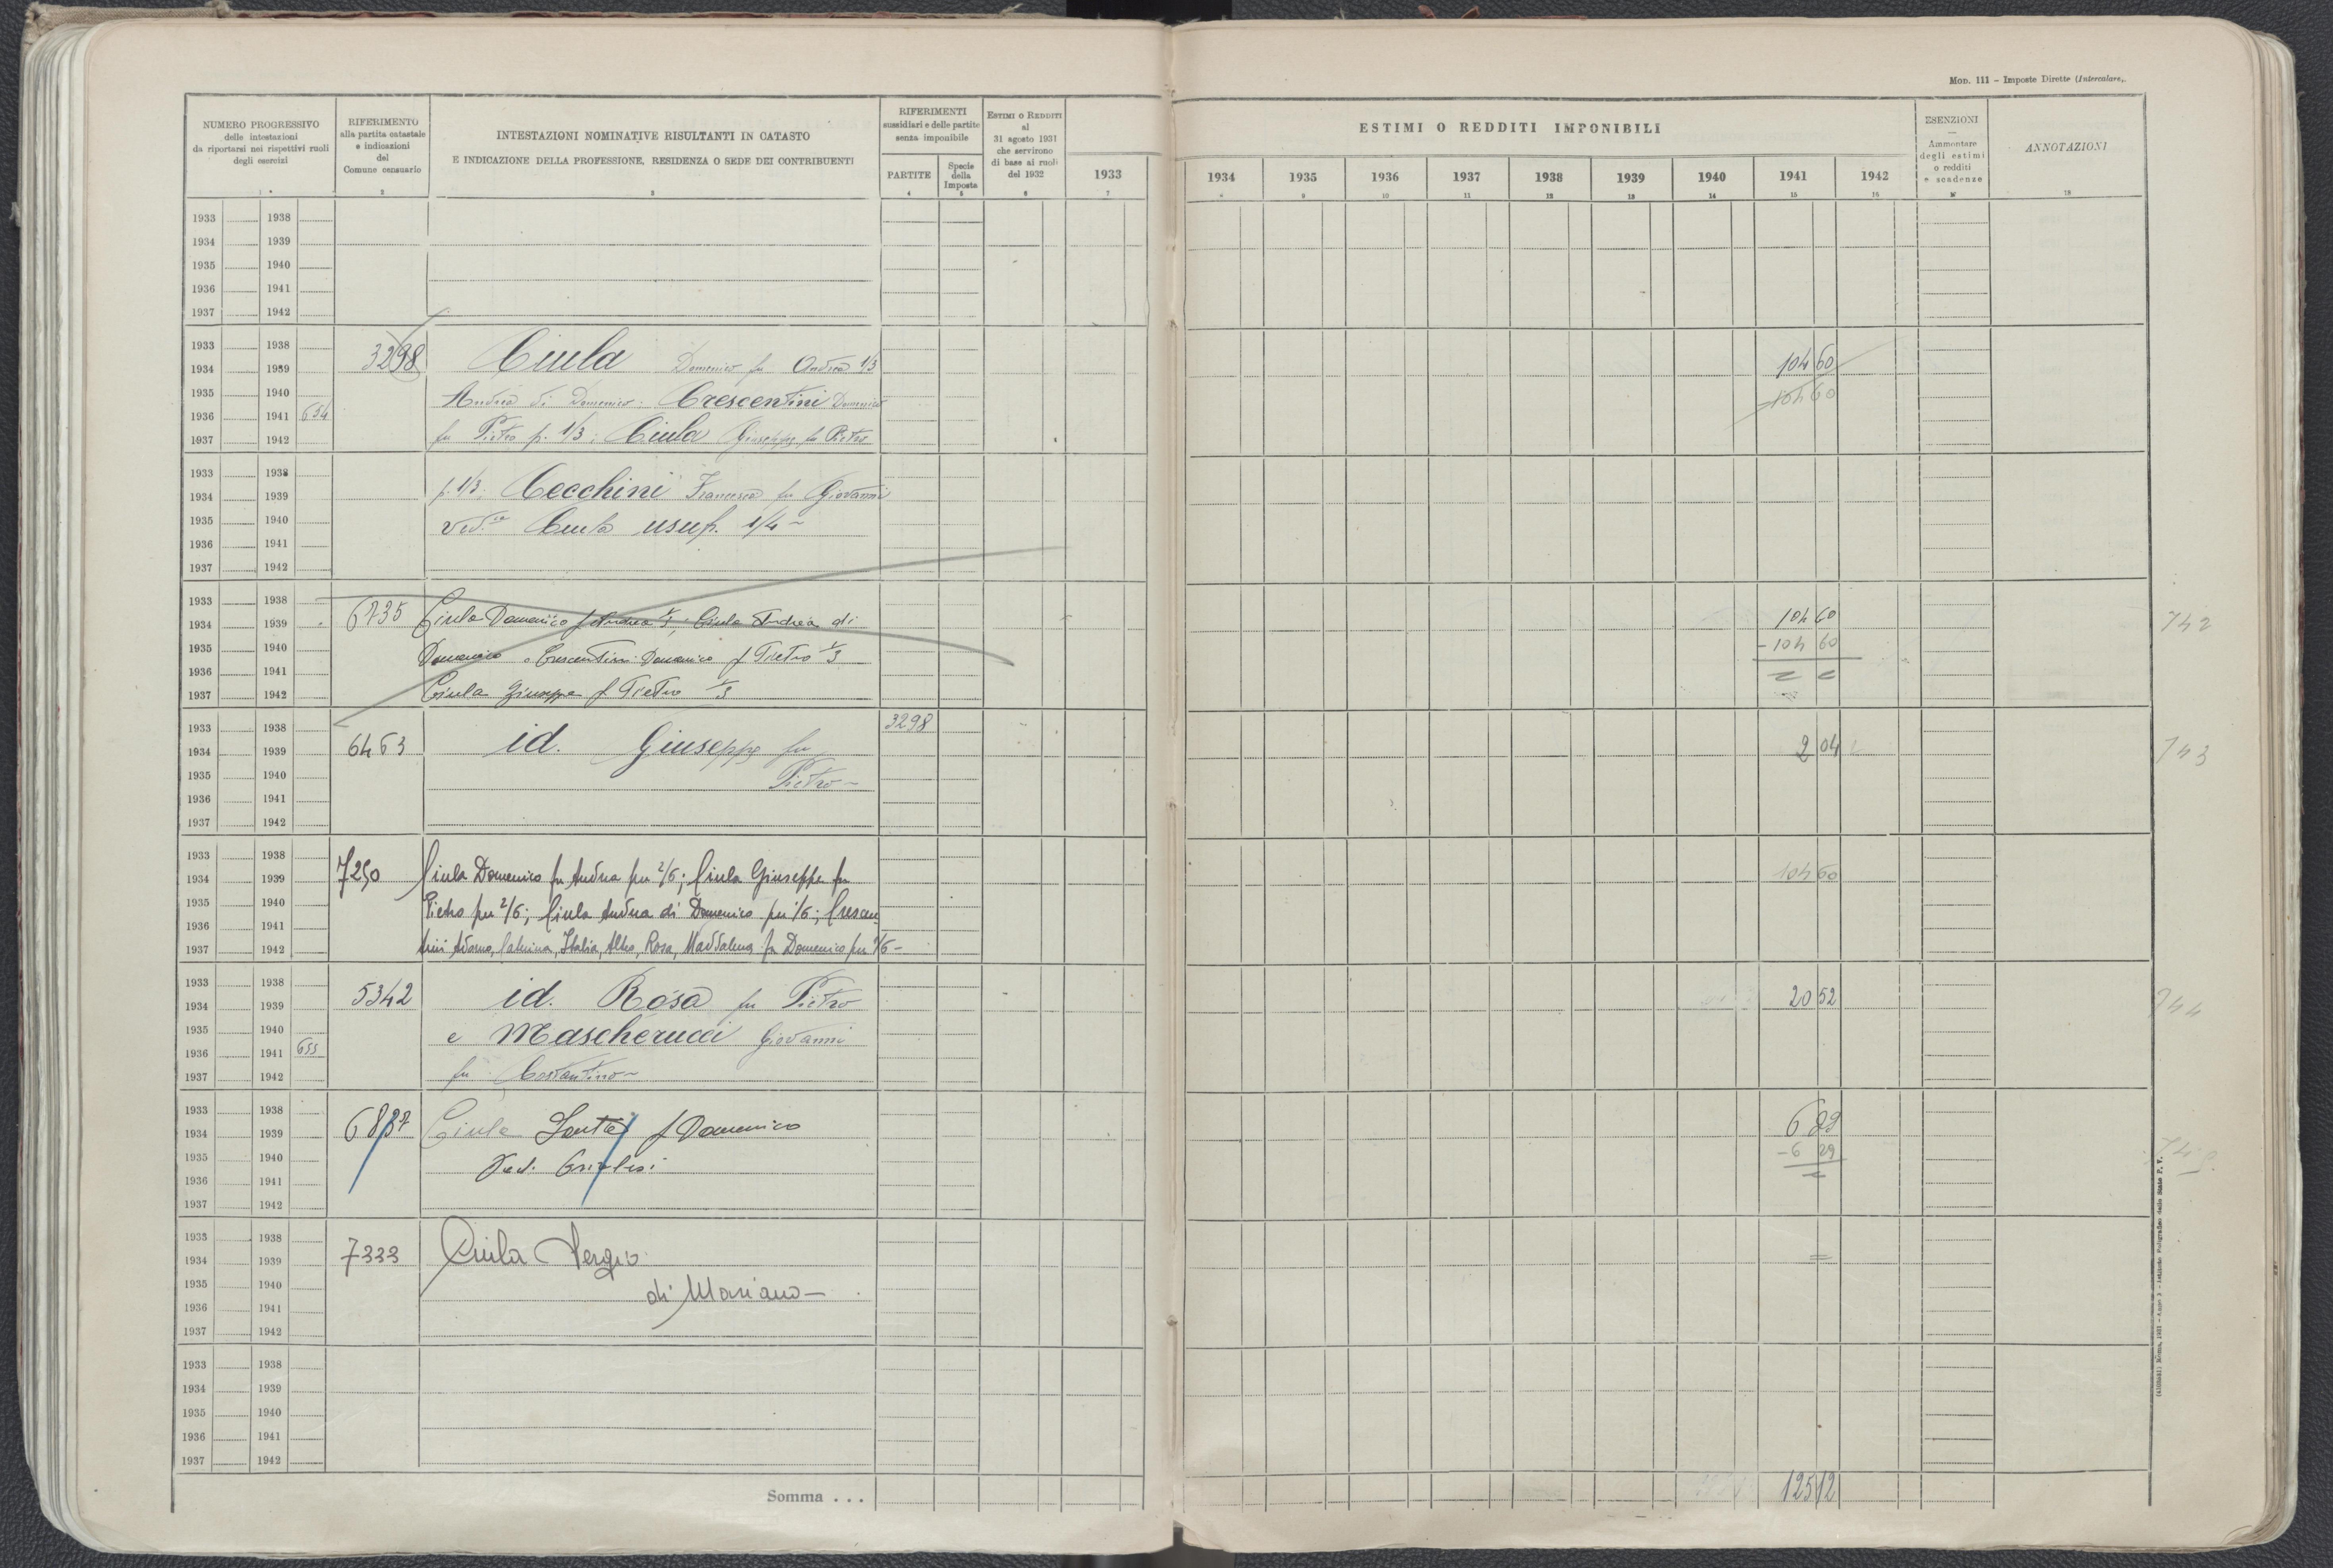 MOD. 111 – Imposte Dirette (Intercalare).
NUMERO PROGRESSIVO
delle intestazioni
da riportarsi nei rispettivi ruoli
degli esercizi
RIFERIMENTO
alla partita catastale
e indicazioni
del
Comune censuario
INTESTAZIONI NOMINATIVE RISULTANTI IN CATASTO
E INDICAZIONE DELLA PROFESSIONE, RESIDENZA O SEDE DEI CONTRIBUENTI
RIFERIMENTI
sussidiari e delle partite
senza imponibile
PARTITE
Specie
della
Imposta
ESTIMI O REDDITI
al
31 agosto 1931
che servirono
di base ai ruoli
del 1932
ESTIMI O REDDITI IMPONIBILI
1933 1934 1935 1936 1937 1938 1939 1940 1941 1942
ESENZIONI
—
Ammontare
degli estimi
o redditi
e scadenze
ANNOTAZIONI
1 2 3 4 5 6 7 9 10 11 12 13 14 15 16 18
1933 1938
1934 1939
1935 1940
1936 1941
1937 1942
1933 1938
3298 Ciula Domenico fu Andrea 1/3 104 60
1934 1939
1935 1940
Andrea di Domenico; Crescentini Domenico 104 60
1936 1941 654
1937 1942
fu Pietro p. 1/3; Ciula Giuseppe fu Pietro
1933 1938
1934 1939
p. 1/3; Cecchini Francesca fu Giovanni
1935 1940
ved. Ciula usuf. 1/4 –
1936 1941
1937 1942
1933 1938
1934 1939
6735 Ciula Domenico f Andrea 1/3; Ciula Andrea di 104 60 742
1935 1940
Domenico e Crescentini Domenico f Pietro 1/3 – 104 60
1936 1941
1937 1942
Ciula Giuseppe f Pietro 1/3
1933 1938
3298
1934 1939
6463 id. Giuseppe fu 2 04 743
1935 1940
Pietro –
1936 1941
1937 1942
1933 1938
1934 1939
7250 Ciula Domenico fu Andrea per 2/6; Ciula Giuseppe fu 104 60
1935 1940
Pietro per 2/6; Ciula Andrea di Domenico per 1/6; Crescen
1936 1941
1937 1942
tini Adorno, Caterina, Italia, Rosa, Maddalena fu Domenico per 1/6 –
1933 1938
1934 1939
5342 id. Rosa fu Pietro 20 52 744
1935 1940
e Mascherucci Giovanni
1936 1941 655
1937 1942
fu Costantino –
1933 1938
1934 1939
Ciula Santa f Domenico 6 29
1935 1940
Ved. – 6 29
1936 1941
1937 1942
1933 1938
1934 1939
7333 Ciula Sergio =
1935 1940
di Mariano –
1936 1941
1937 1942
1933 1938
1934 1939
1935 1940
1936 1941
1937 1942
Somma . . . 125 12